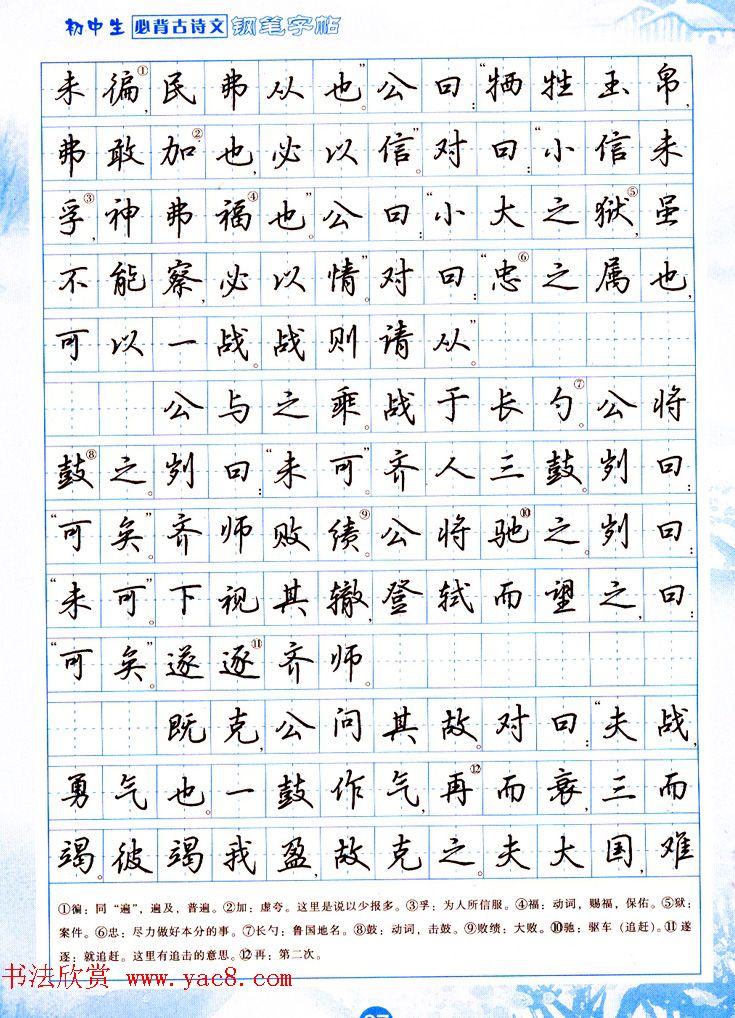 初中生 必背古诗文 钢笔字帖
未徧①,民弗从也。”公曰:“牺牲玉帛,
弗敢加②也,必以信。”对曰:“小信未
孚③,神弗福④也。”公曰:“小大之狱⑤,虽
不能察,必以情。”对曰:“忠⑥之属也,
可以一战。战则请从。”
公与之乘。战于长勺⑦。公将
鼓⑧之。刿曰:“未可。”齐人三鼓。刿曰:
“可矣。”齐师败绩⑨。公将驰⑩之。刿曰:
“未可。”下视其辙,登轼而望之,曰:
“可矣。”遂逐⑪齐师。
既克,公问其故。对曰:“夫战,
勇气也。一鼓作气,再⑫而衰,三而
竭。彼竭我盈,故克之。夫大国,难
①徧:同“遍”,遍及,普遍。②加:虚夸。这里是说以少报多。③孚:为人所信服。④福:动词,赐福,保佑。⑤狱:
案件。⑥忠:尽力做好本分的事。⑦长勺:鲁国地名。⑧鼓:动词,击鼓。⑨败绩:大败。⑩驰:驱车(追赶)。⑪遂
逐:就追赶。这里有追击的意思。⑫再:第二次。
书法欣赏 www.yac8.com